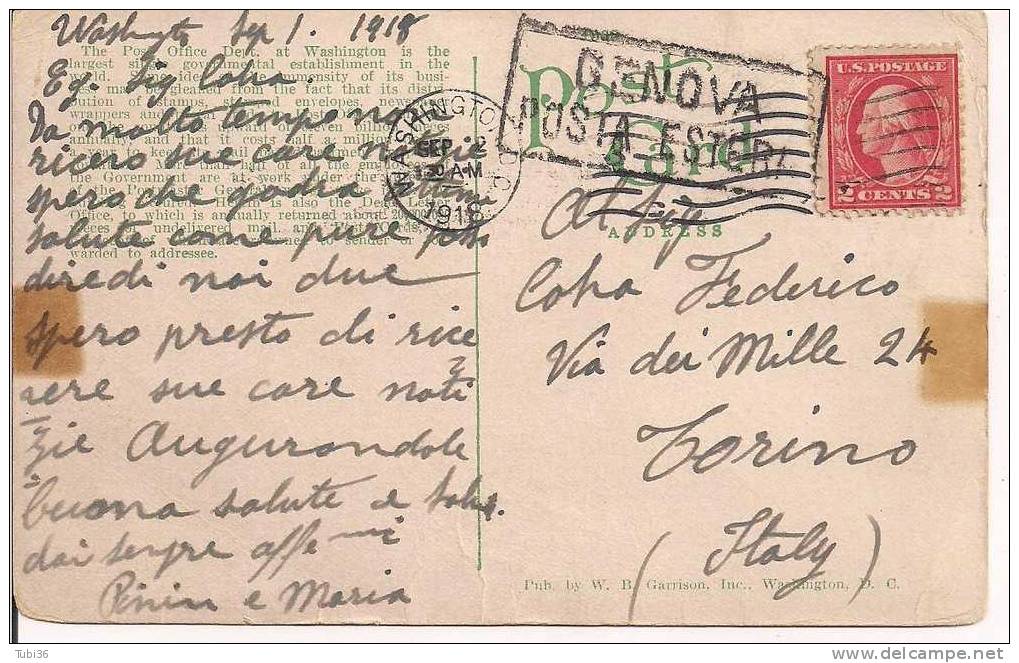 Washingto Sep 1. 1918
Eg. Sig Coha.
Da molto tempo no
ricevo sue care notizie
spero che godra ottima
salute come pure posso
dire di noi due
spero presto di rice
vere sue care noti
zie Augurandole
buona salute e
dai sempre affe mi
Pinin e Maria
The Post Office Dept. at Washington is the
largest single governmental establishment in the
world. Some idea of the immensity of its busi-
ness may be gleaned from the fact that its distri-
bution of stamps, stamped envelopes, newspaper
wrappers and
annually, and that it costs half a million
the Government are at work under the
of the Postmaster General.
Office, to which is annually returned about 20,000,000
pieces for undelivered mail and
warded to addressee.
WASHINGTON, D.C.
SEP 2
A-M
1918
GENOVA
POSTA ESTERI
Post Card
ADDRESS
U.S. POSTAGE
2 CENTS 2
Al Sig
Coha Federico
Via dei Mille 24
Torino
(Italy)
Pub. by W. B. Garrison, Inc., Washington, D. C.
Tubi36
www.delcampe.net